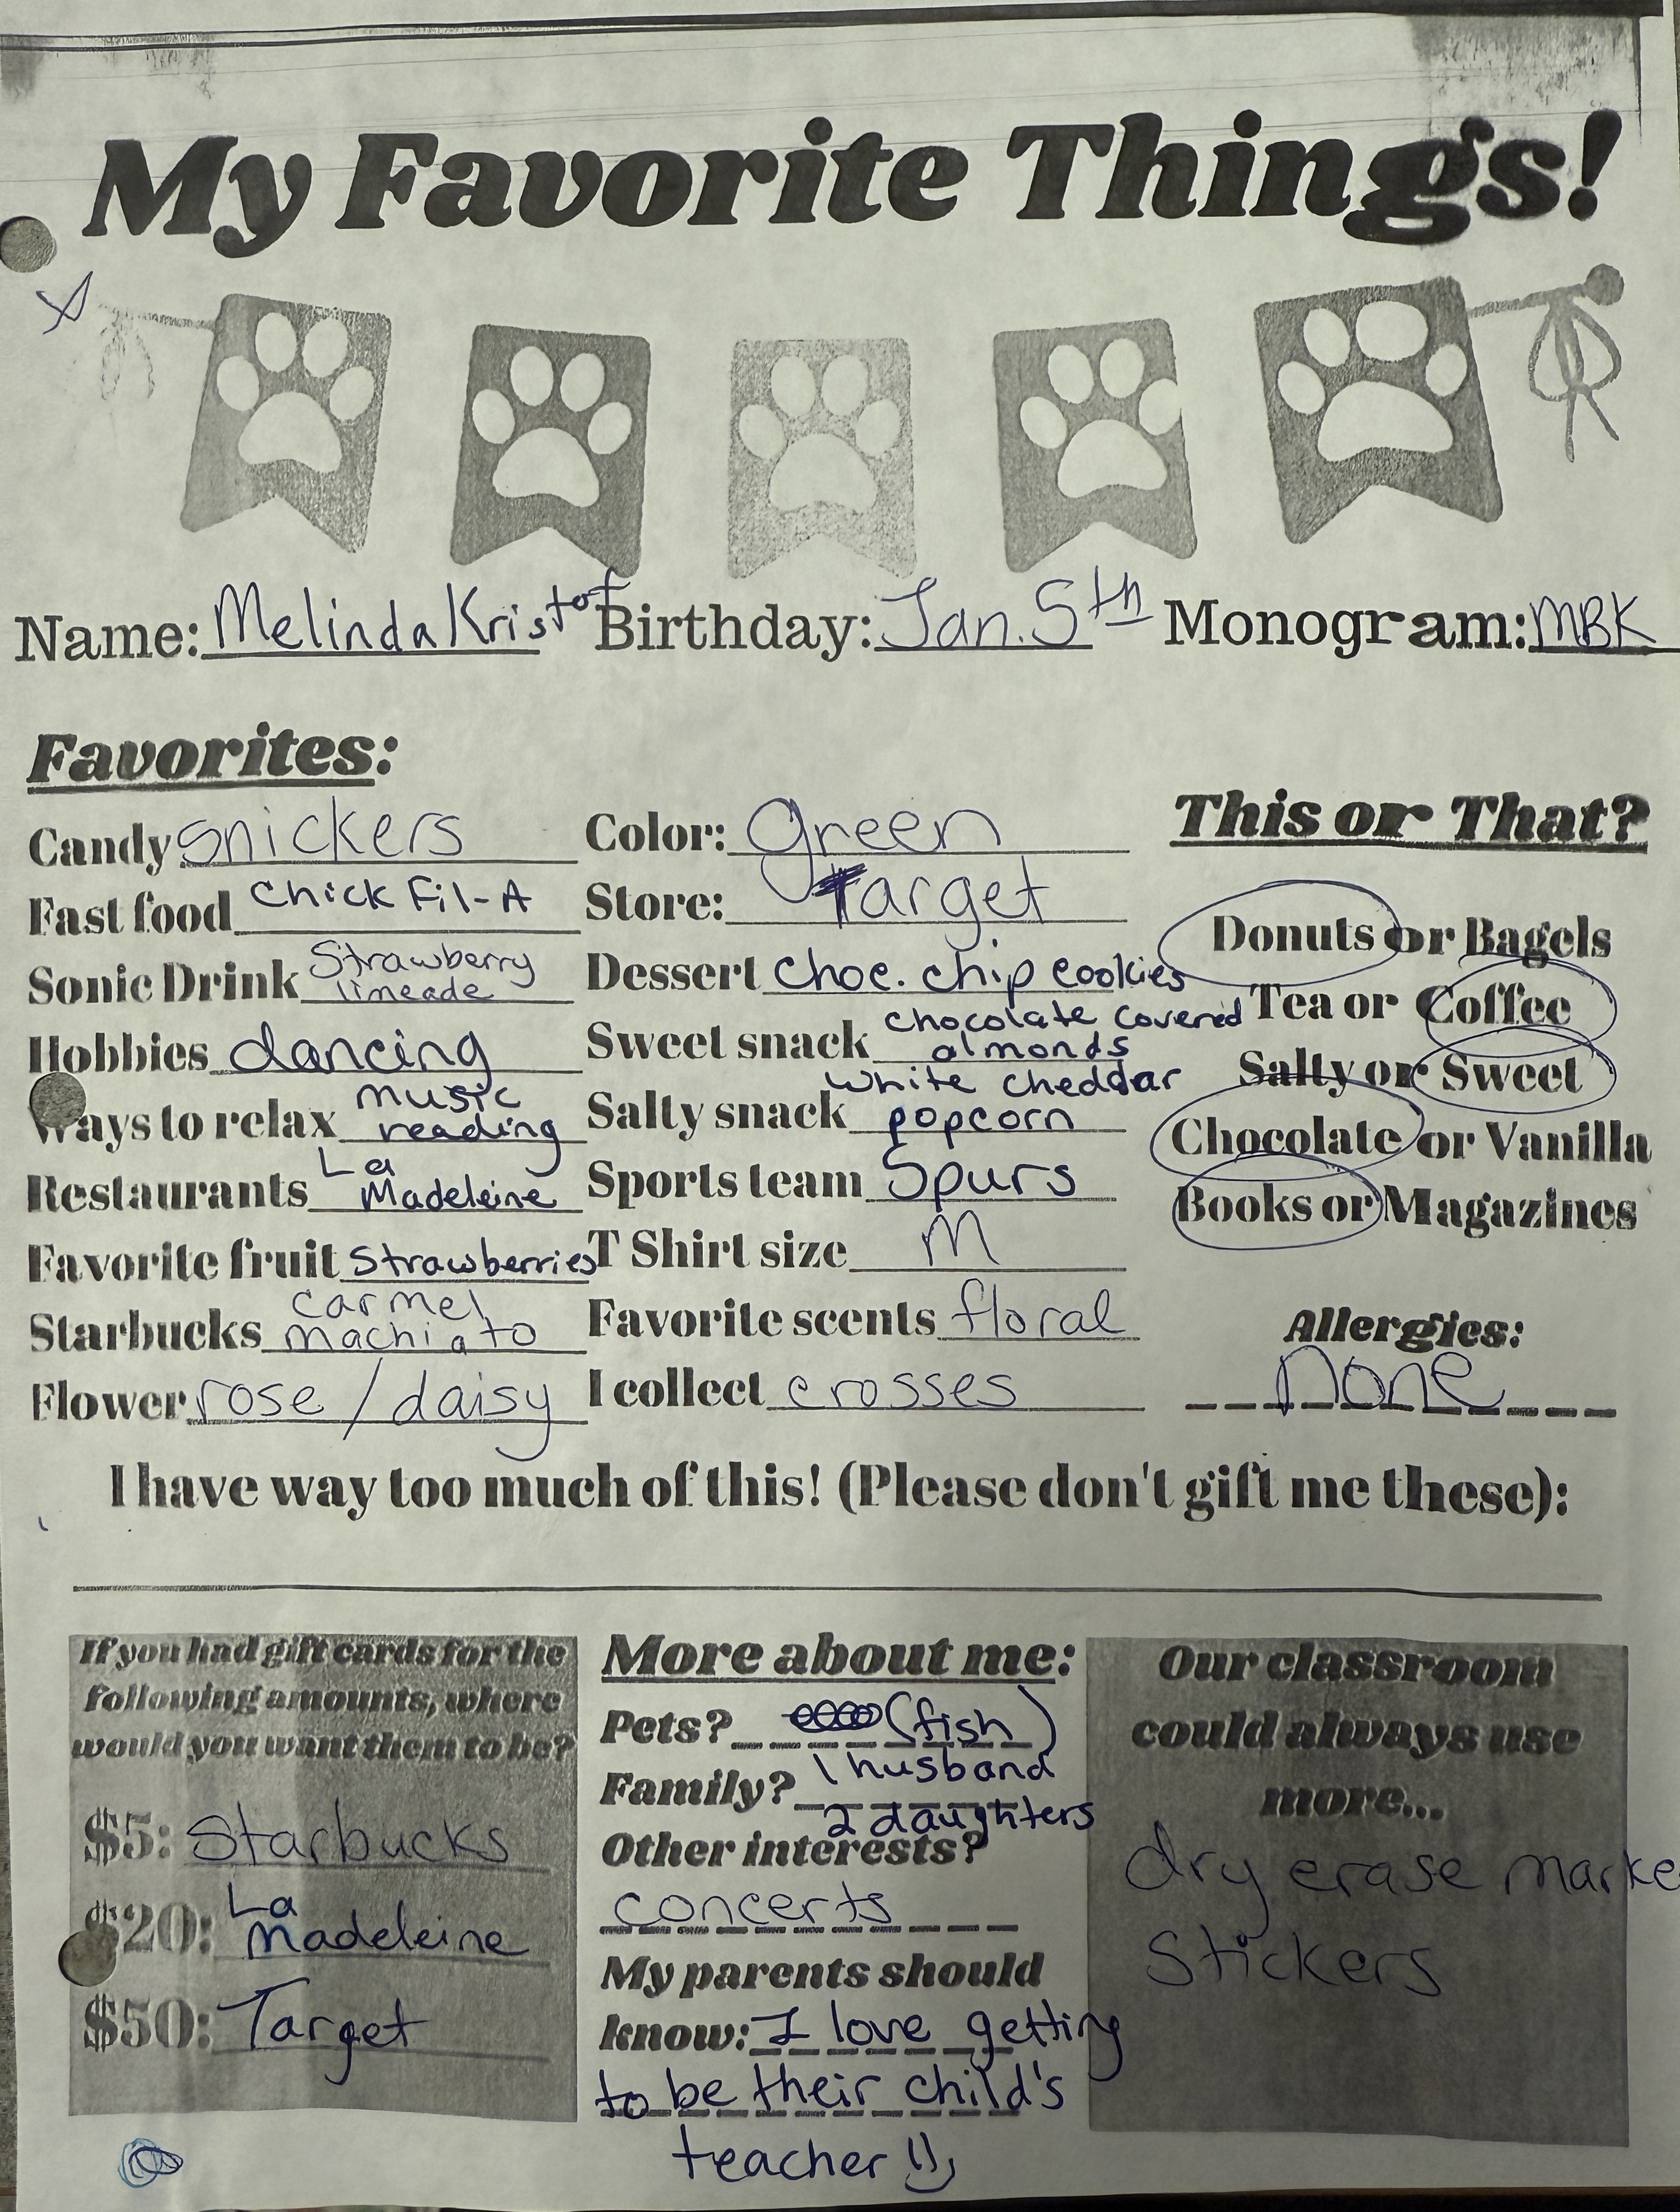 My Favorite Things!
Name: Melinda Kristof Birthday: Jan. 5th Monogram: MBK
Favorites:
Candy snickers
Fast food Chick Fil-A
Sonic Drink Strawberry
limeade
Hobbies dancing
Ways to relax music
reading
Restaurants La
Madeleine
Favorite fruit Strawberries
Starbucks carmel
machiato
Flower rose / daisy
Color: green
Store: Target
Dessert choc. chip cookies
Sweet snack chocolate covered
almonds
Salty snack white cheddar
popcorn
Sports team Spurs
T Shirt size M
Favorite scents floral
I collect crosses
This or That?
Donuts or Bagels
Tea or Coffee
Salty or Sweet
Chocolate or Vanilla
Books or Magazines
Allergies:
none
I have way too much of this! (Please don't gift me these):
If you had gift cards for the
following amounts, where
would you want them to be?
$5: Starbucks
$20: La
Madeleine
$50: Target
More about me:
Pets? (fish)
Family? 1 husband
2 daughters
Other interests?
concerts
My parents should
know: I love getting
to be their child's
teacher
Our classroom
could always use
more...
dry erase marke
Stickers